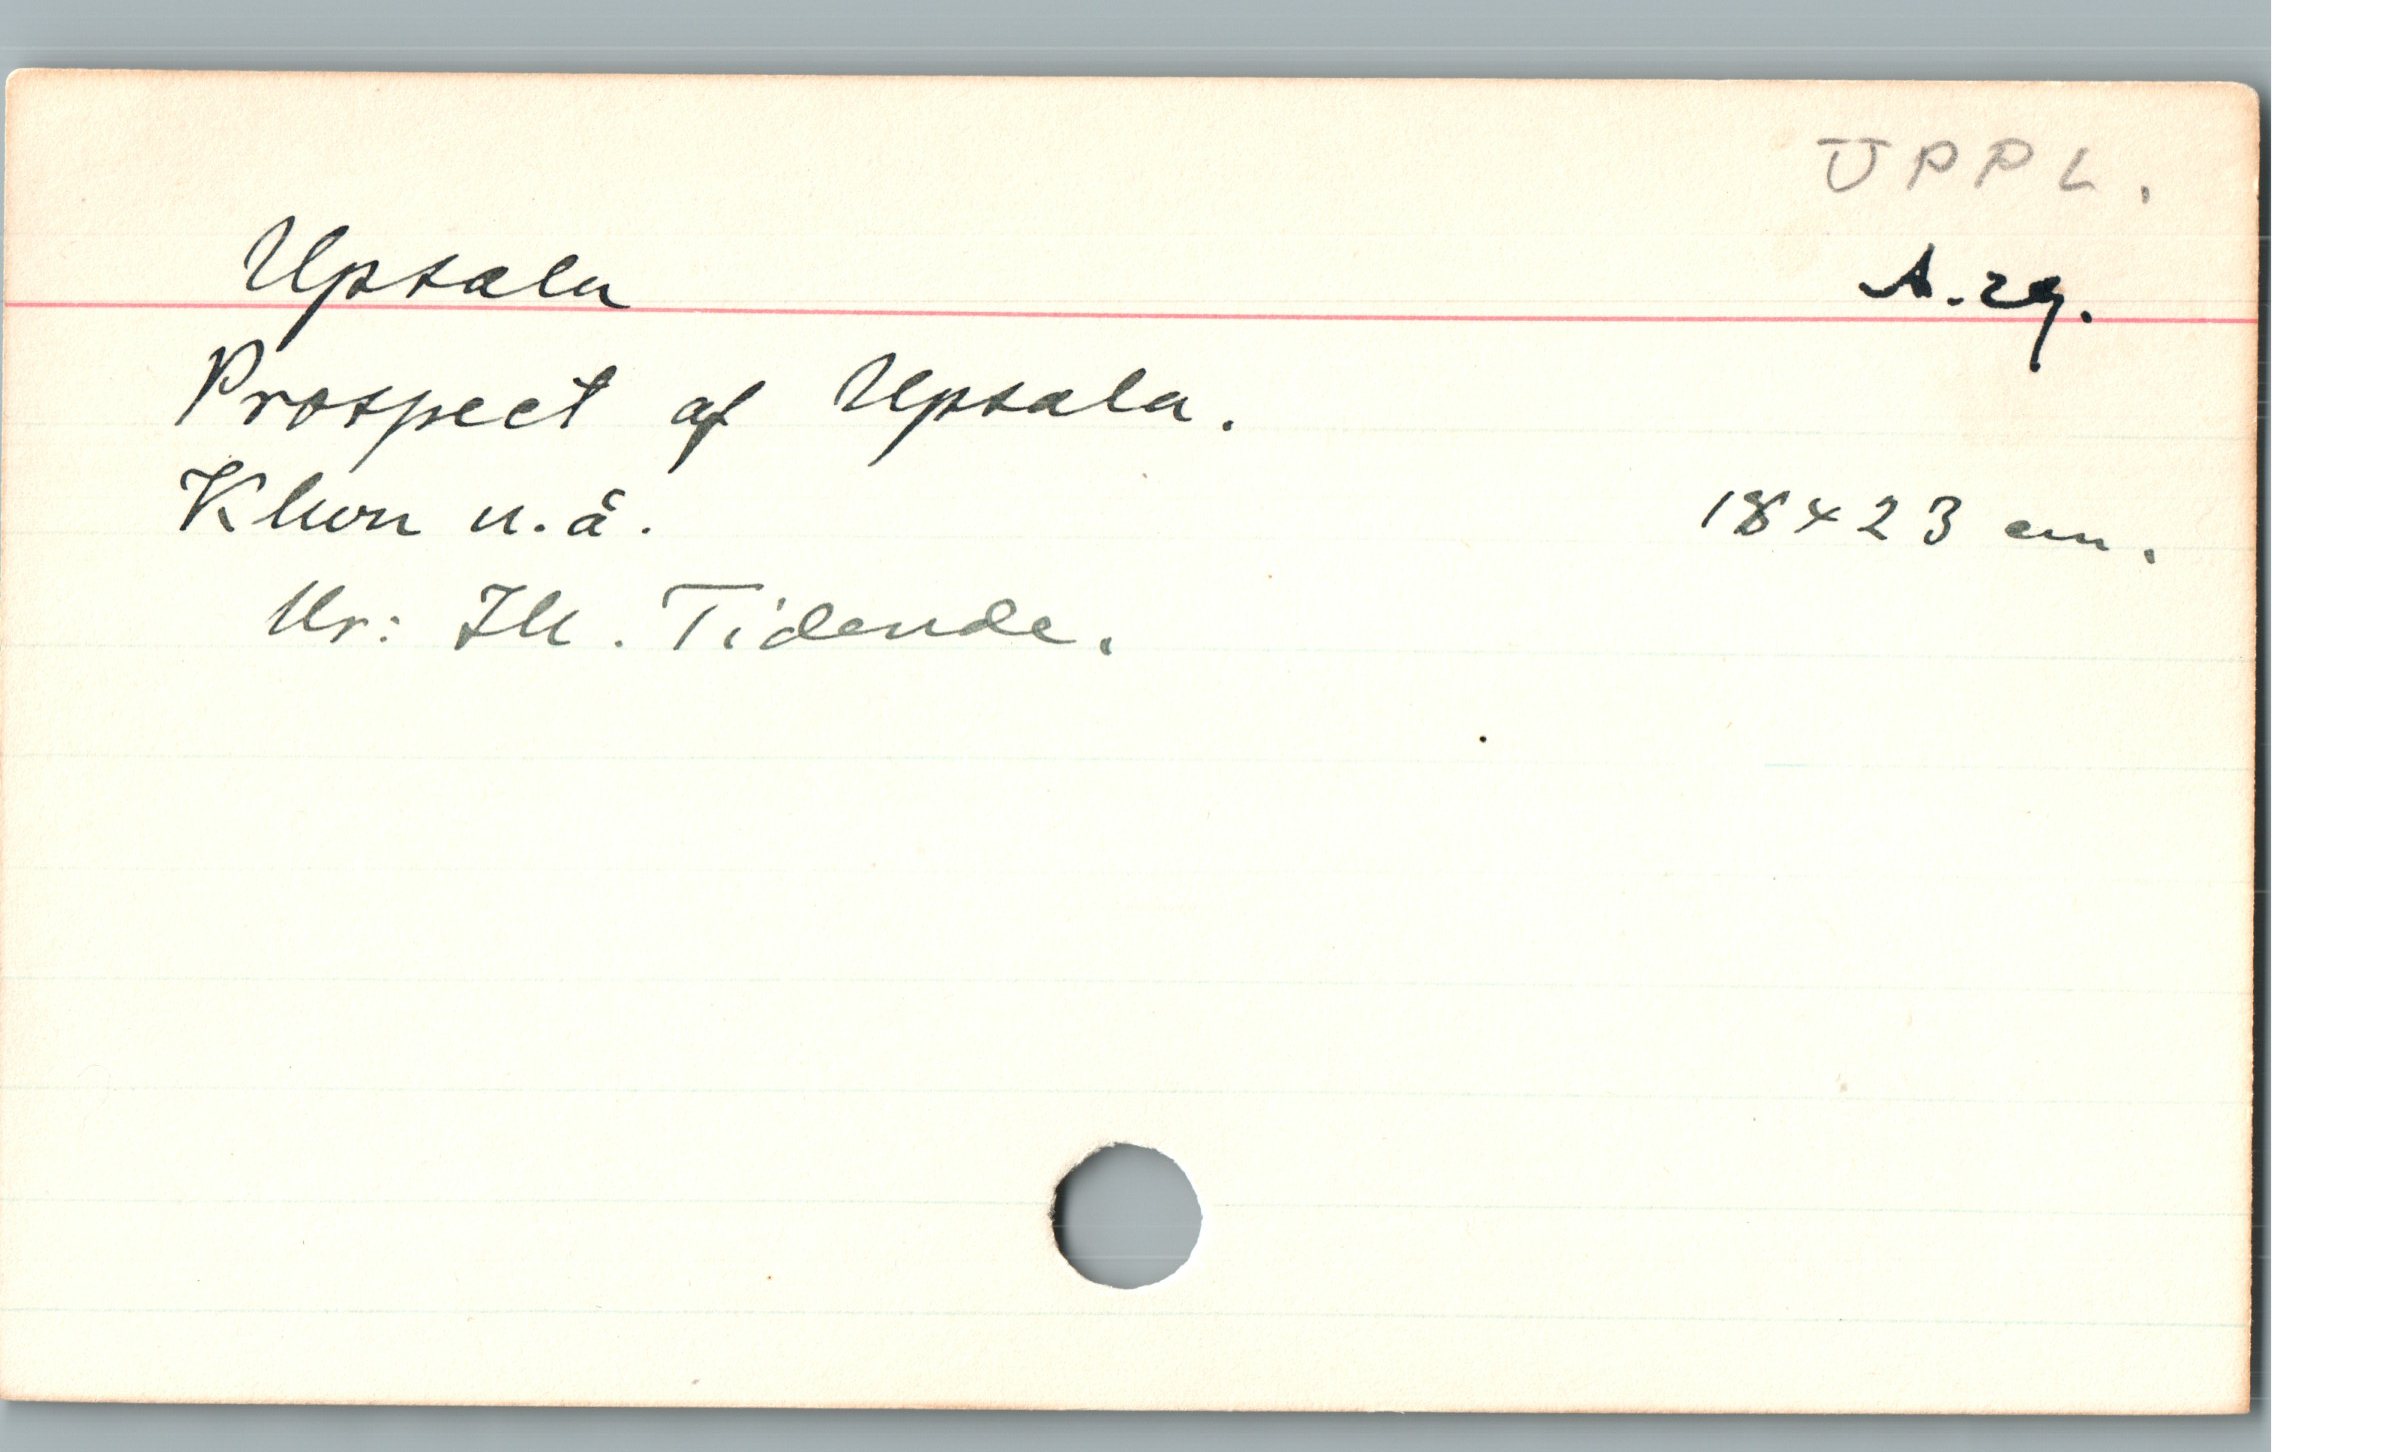 UPPL.
Upsala A. 29.
Prospect af Upsala.
Khvn u. å. 18 x 23 cm.
Ur: Ill. Tidende.